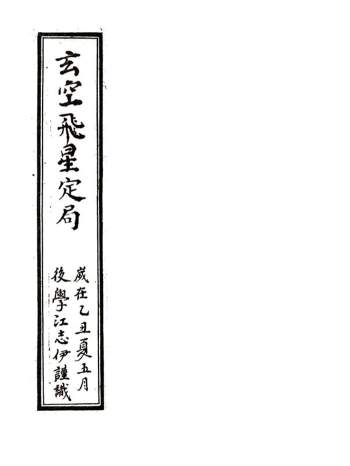 玄空飛星定局
歲在乙丑夏五月
後學江志伊謹識